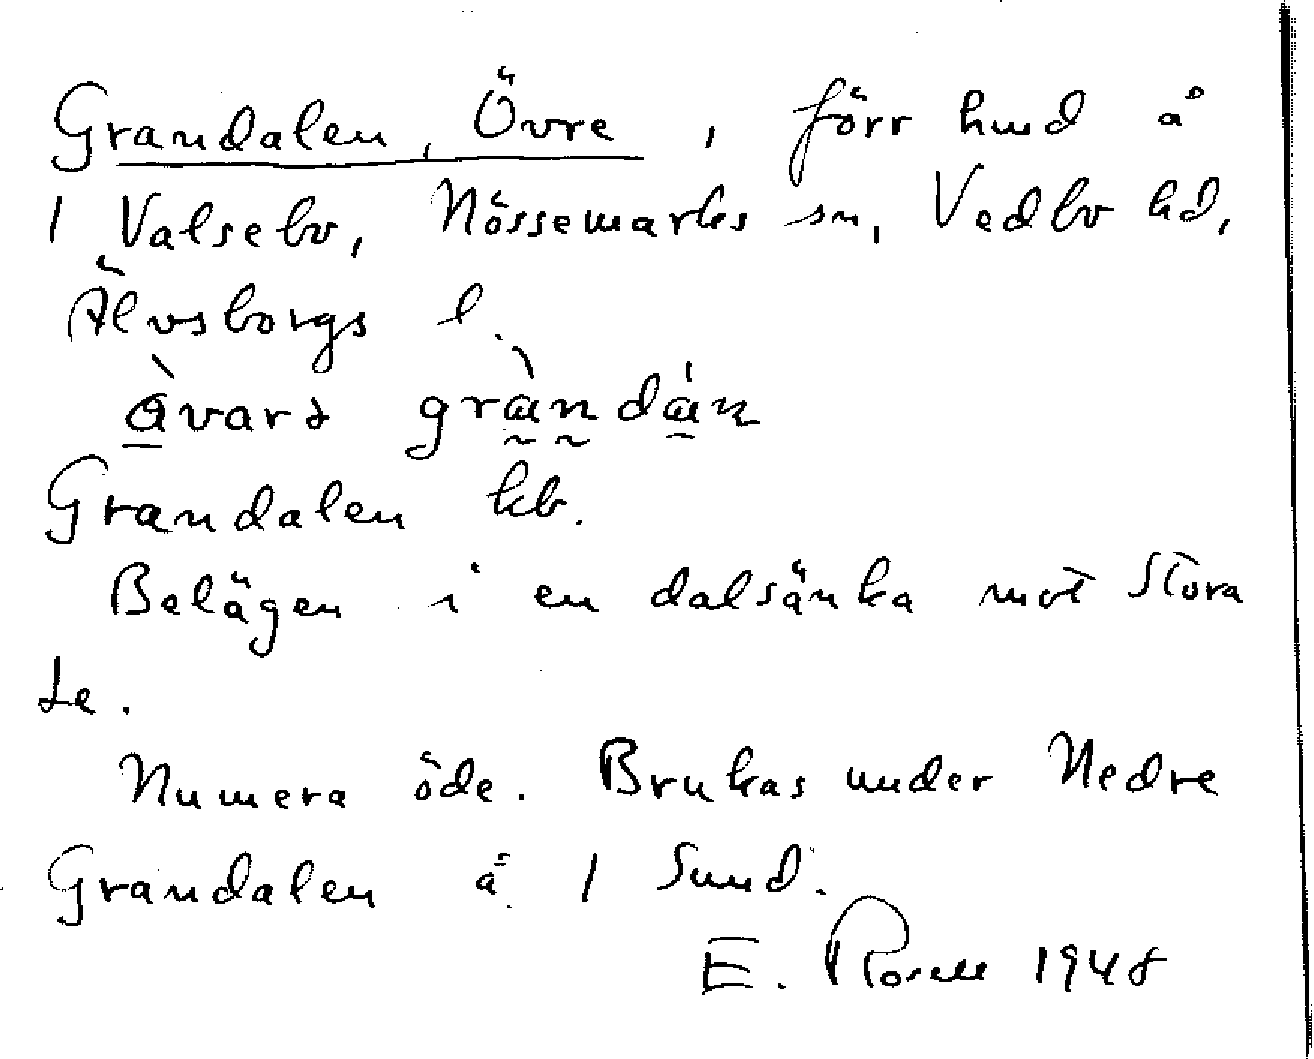 Grandalen, Övre, förr hmd å
1 Valsebo, Nössemarks sn, Vedbo hd,
Älvsborgs l.
Grandalen kb.
Belägen i en dalsänka mot Stora
Le.
Numera öde. Brukas under Nedre
Grandalen å 1 Sund.
E. Rosell 1948